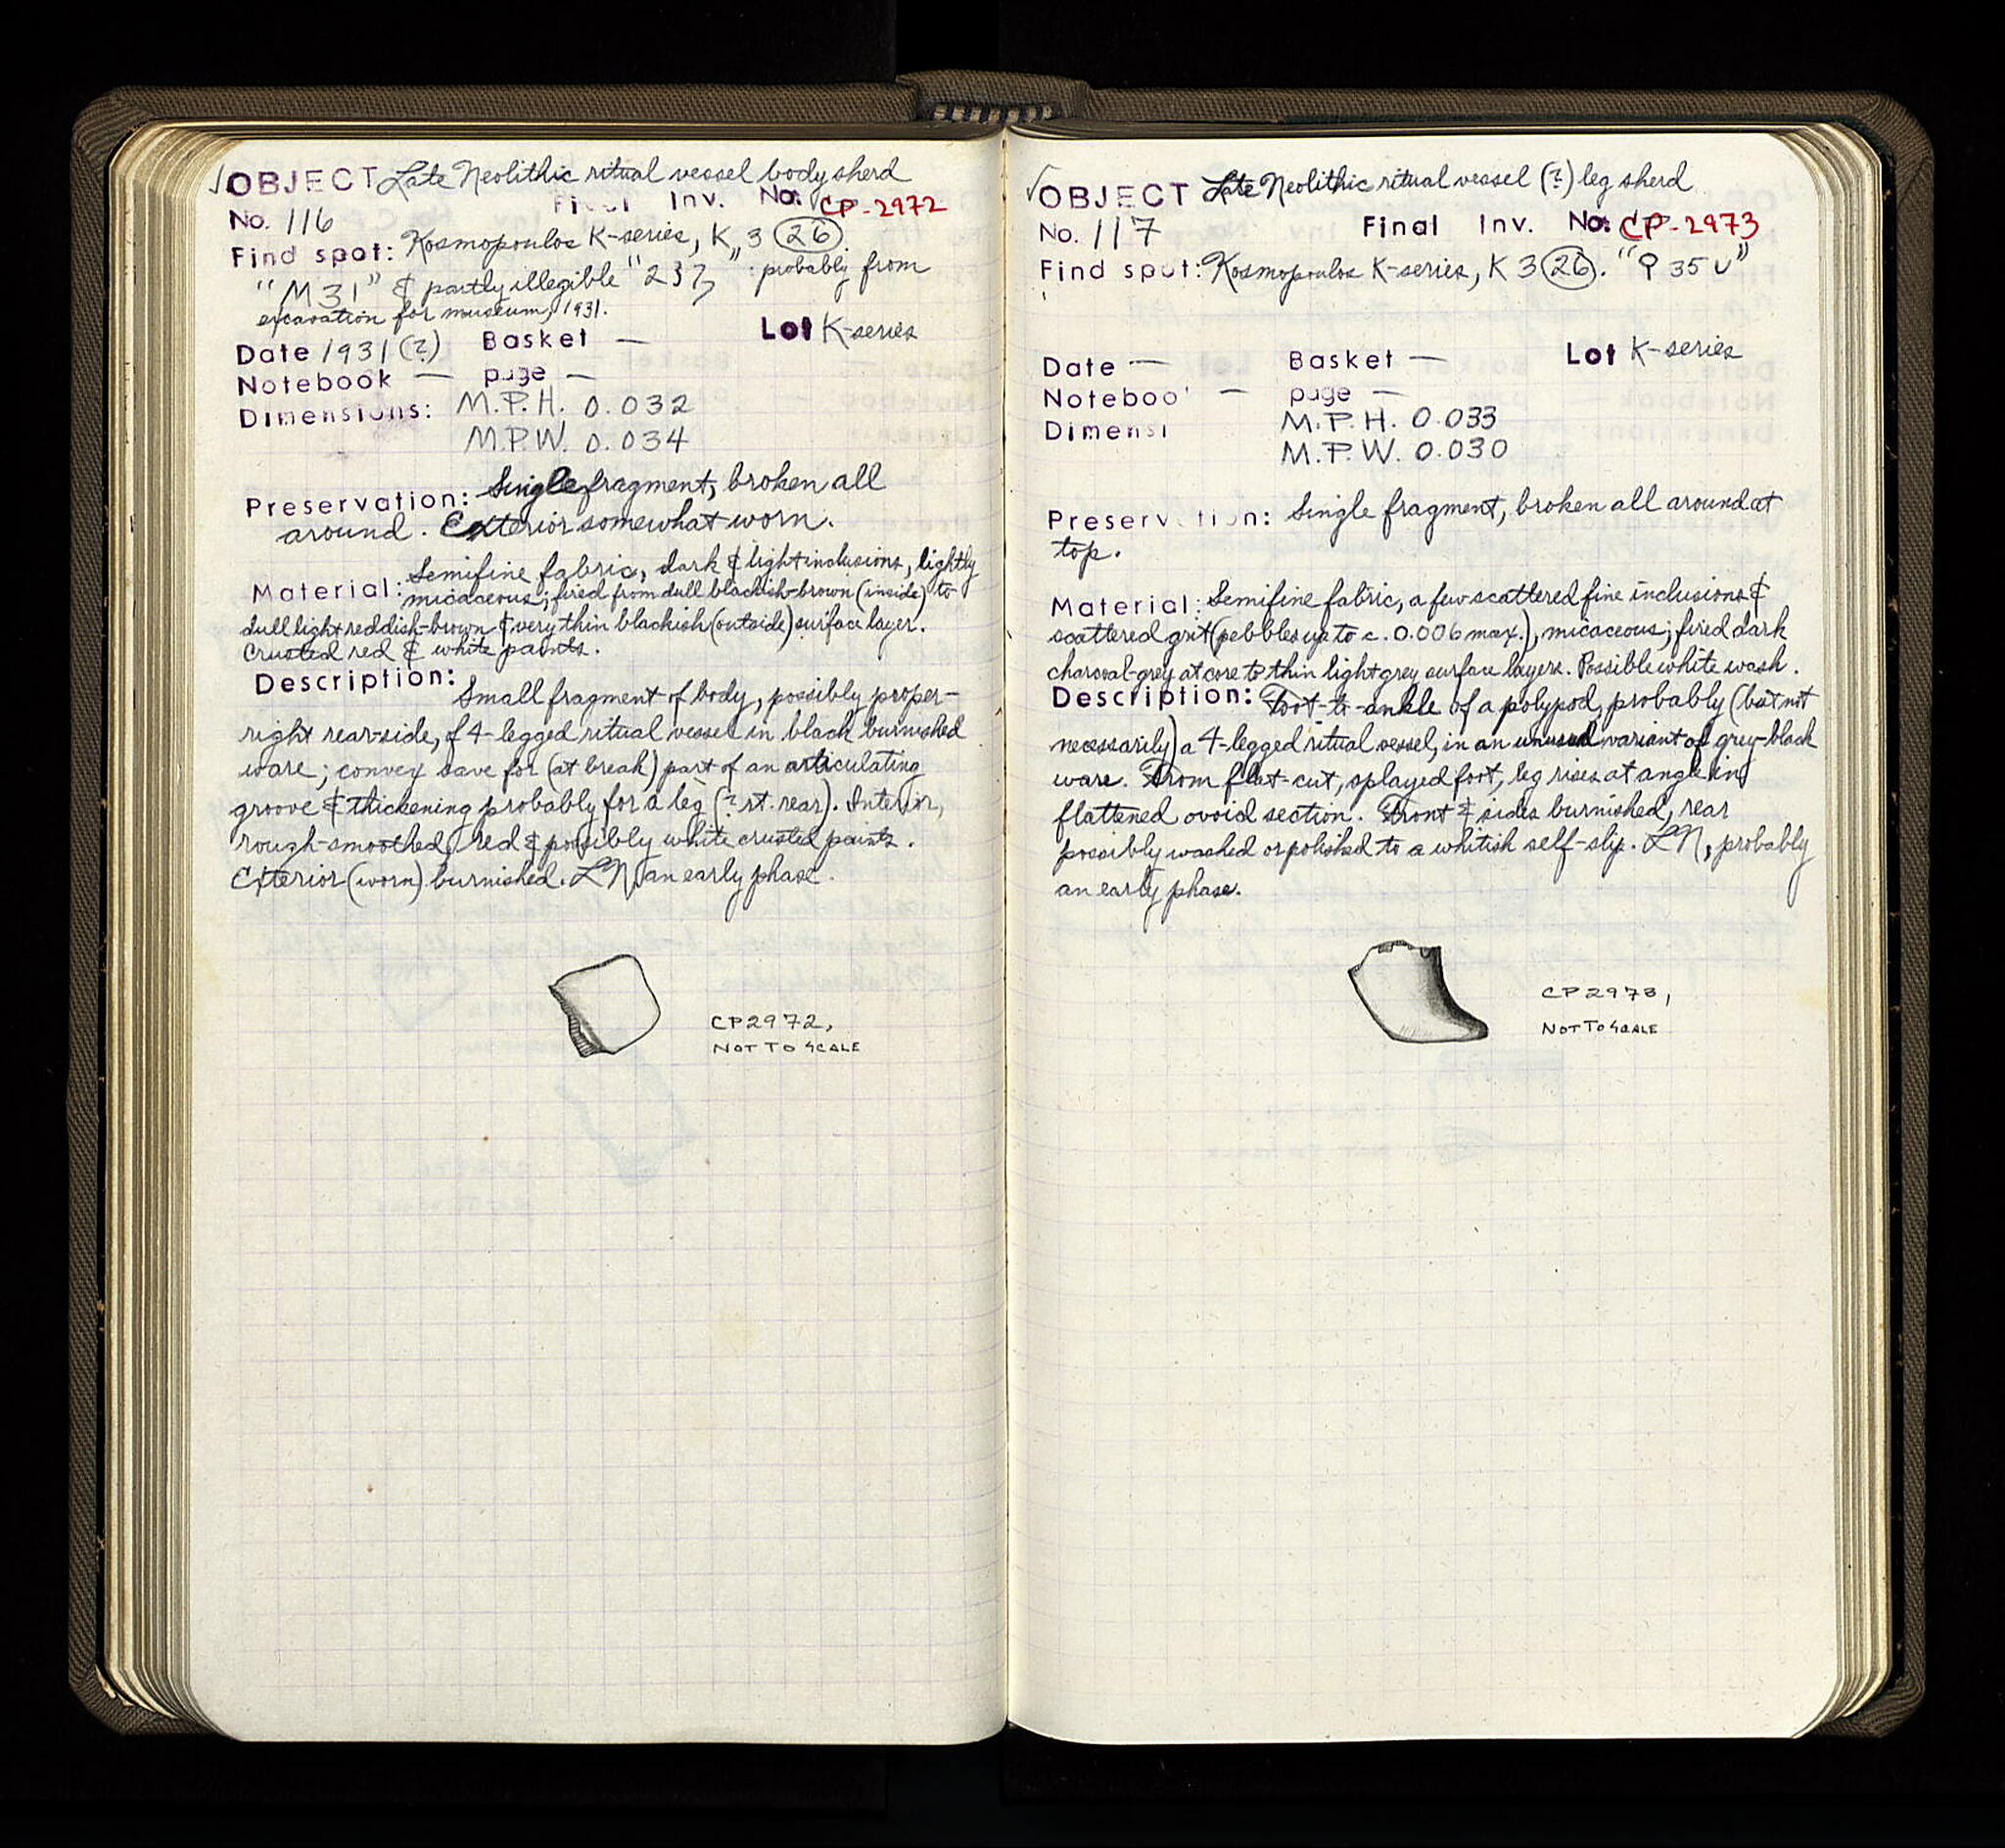 √OBJECT Late Neolithic ritual vessel body sherd
No. 116 Final Inv. No: √CP-2972
Find spot: Kosmopoulos K-series, K 3 (26).
"M31" & partly illegible "237" : probably from
excavation for museum, 1931.
Date 1931(?) Basket — Lot K-series
Notebook — page —
Dimensions: M.P.H. 0.032
M.P.W. 0.034
Preservation: Single fragment, broken all
around. Exterior somewhat worn.
Material: Semifine fabric, dark & light inclusions, lightly
micaceous; fired from dull blackish-brown (inside) to
dull light reddish-brown & very thin blackish (outside) surface layer.
Crusted red & white paints.
Description: Small fragment of body, possibly proper-
right rear-side, of 4-legged ritual vessel in black burnished
ware; convex save for (at break) part of an articulating
groove & thickening probably for a leg (? rt. rear). Interior,
rough-smoothed, red & possibly white crusted paints.
Exterior (worn) burnished. LN, an early phase.
CP2972,
NOT TO SCALE
√OBJECT Late Neolithic ritual vessel (?) leg sherd
No. 117 Final Inv. No: CP-2973
Find spot: Kosmopoulos K-series, K 3 (26). "♀ 35 U"
Date — Basket — Lot K-series
Noteboo — page —
Dimensi M.P.H. 0.033
M.P.W. 0.030
Preservation: Single fragment, broken all around at
top.
Material: Semifine fabric, a few scattered fine inclusions &
scattered grit (pebbles up to c. 0.006 max.), micaceous; fired dark
charcoal-grey at core to thin light grey surface layers. Possible white wash.
Description: Foot-to-ankle of a polypod, probably (but not
necessarily) a 4-legged ritual vessel, in an unusual variant of grey-black
ware. From flat-cut, splayed foot, leg rises at angle in
flattened ovoid section. Front & sides burnished, rear
possibly washed or polished to a whitish self-slip. LN, probably
an early phase.
CP2973,
NOT TO SCALE